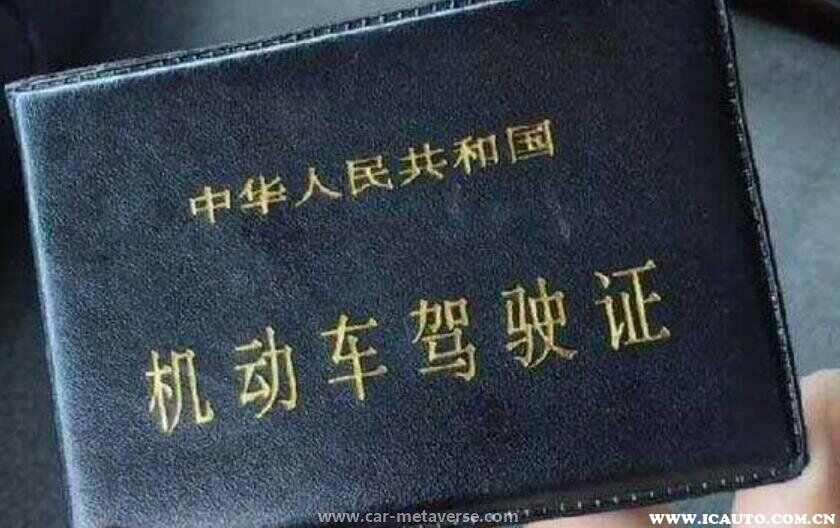 中华人民共和国
机动车驾驶证
www.car-metaverse.com
WWW.ICAUTO.COM.CN